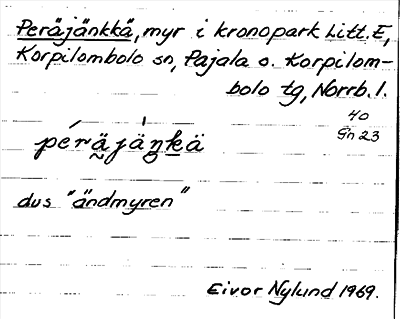 Peräjänkkä, myr i kronopark Litt. E,
Korpilombolo sn, Pajala o. Korpilom-
bolo tg, Norrb. l.
40
Gn 23
peräjäŋkä
dvs "ändmyren"
Eivor Nylund 1969.